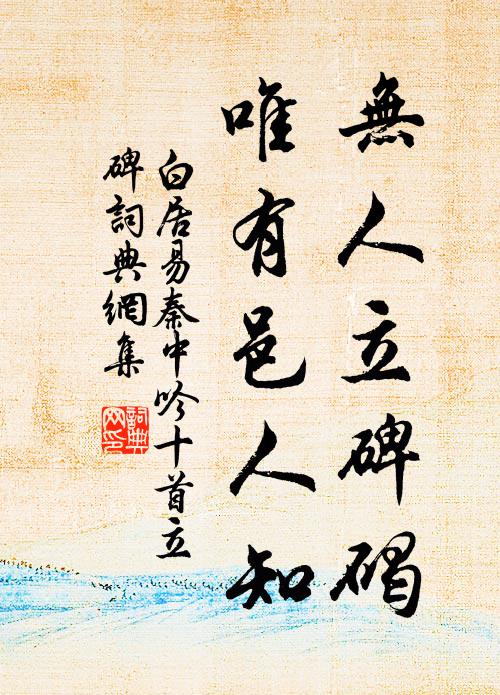 無人立碑碣
唯有邑人知
白居易秦中吟十首立
碑詞典網集
詞典
网印